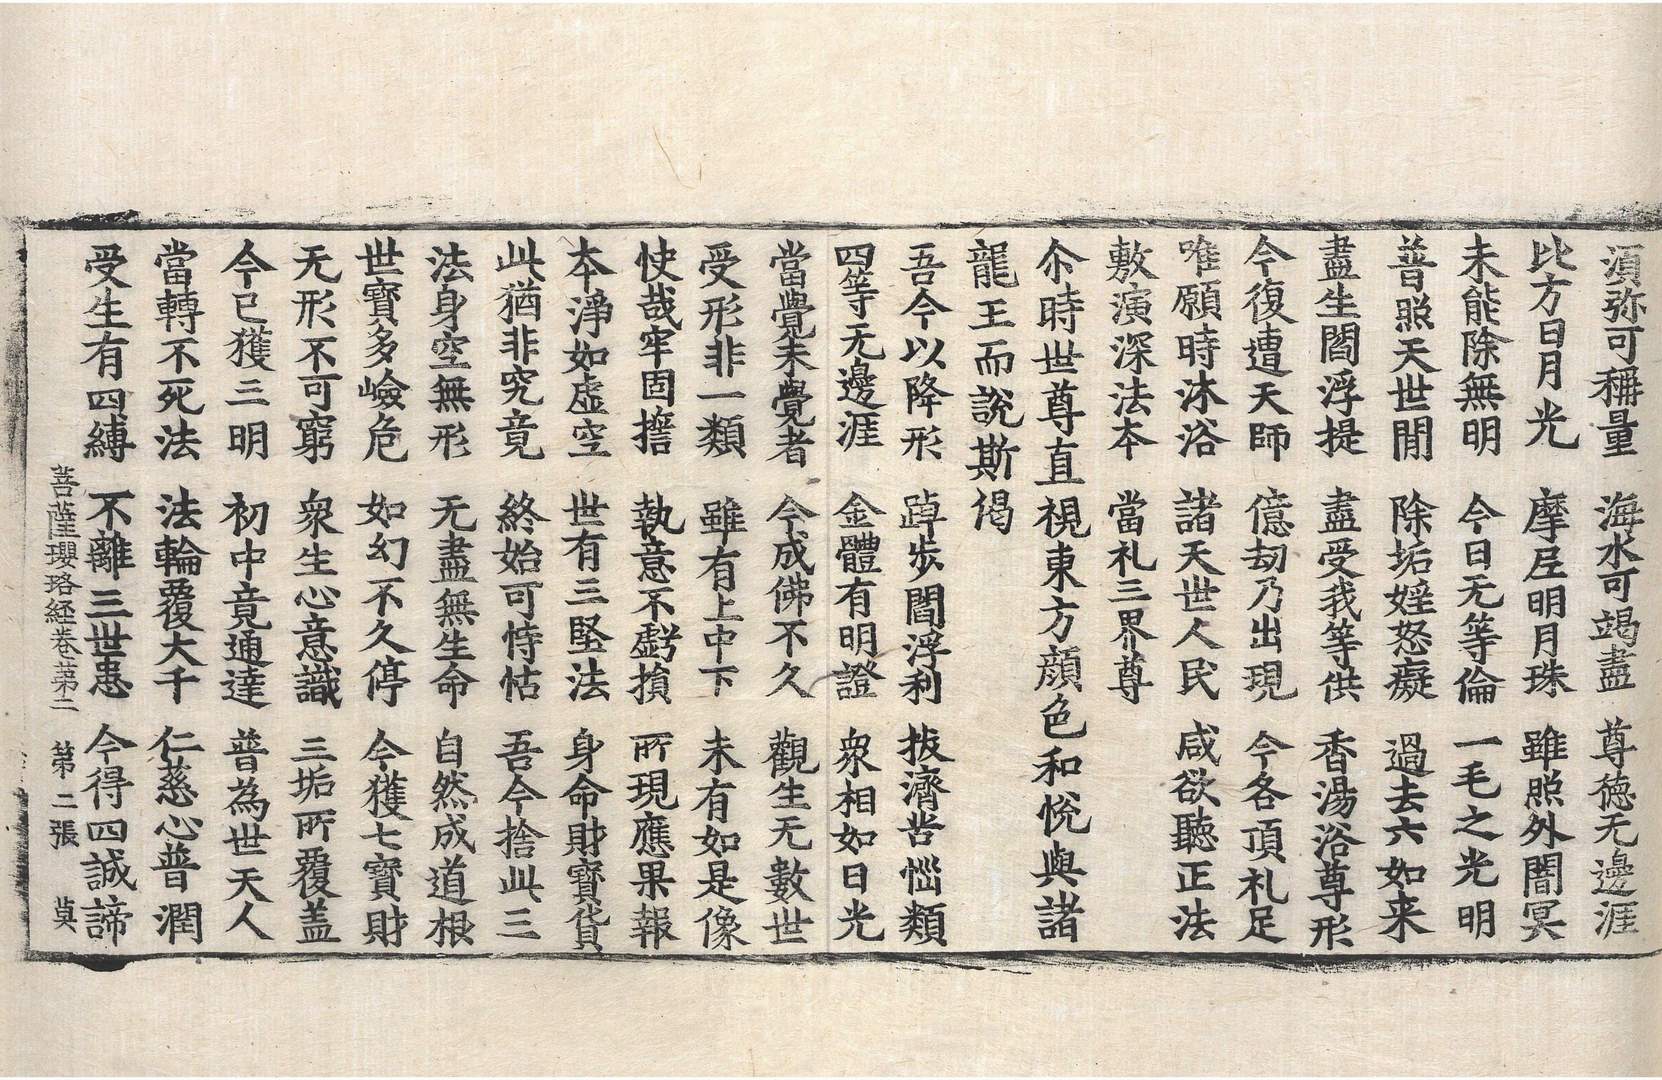 湏弥可稱量 海水可竭盡 尊德无邊涯
比方日月光 摩尼明月珠 雖照外闇冥
未能除無明 今日无等倫 一毛之光明
普照天世間 除垢婬怒癡 過去六如来
盡生閻浮提 盡受我等供 香湯浴尊形
今復遭天師 億劫乃出現 今各頂礼足
唯願時沐浴 諸天世人民 咸欲聽正法
敷演深法本 當礼三界尊
尒時世尊直視東方顔色和悅與諸
龍王而說斯偈
吾今以降形 踔步閻浮利 拔濟苦惱類
四等无邊涯 金體有明證 衆相如日光
當覺未覺者 今成佛不久 觀生无數世
受形非一類 雖有上中下 未有如是像
快哉牢固擔 執意不虧損 所現應果報
本淨如虛空 世有三堅法 身命財寶貨
此猶非究竟 終始可恃怙 吾今捨此三
法身空無形 无盡無生命 自然成道根
世寶多嶮危 如幻不久停 今獲七寶財
无形不可窮 衆生心意識 三垢所覆盖
今已獲三明 初中竟通達 普為世天人
當轉不死法 法輪覆大千 仁慈心普潤
受生有四縛 不離三世患 今得四誠諦
菩薩瓔珞經卷苐二 苐二張 莫